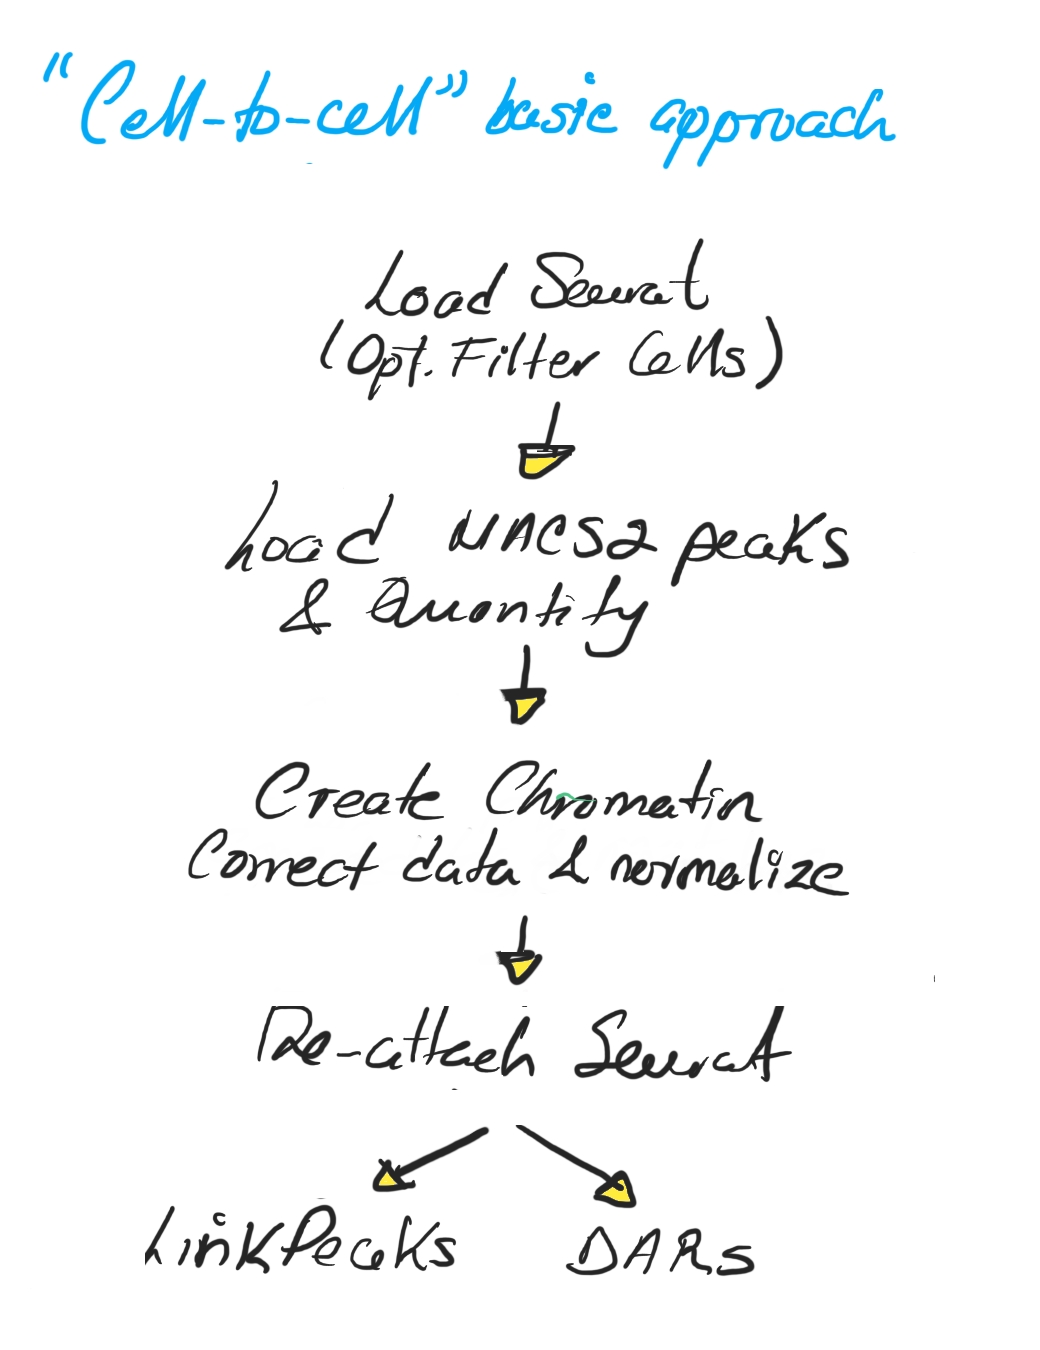 "Cell-to-cell" basic approach
Load Seurat
(Opt. Filter Cells)
Load MACS2 peaks
& Quantify
Create Chromatin
Correct data & normalize
Re-attach Seurat
LinkPeaks DARs